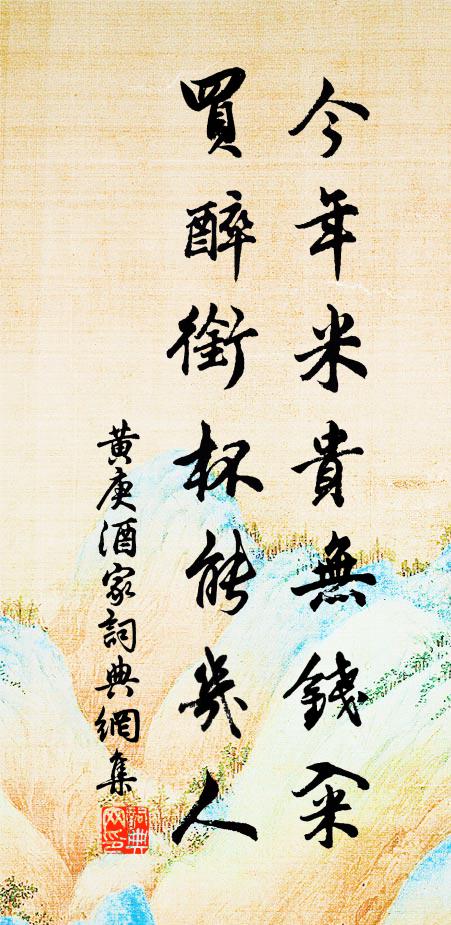 今年米貴無錢籴
買醉銜杯能幾人
黃庚酒家詞典網集
詞典網印